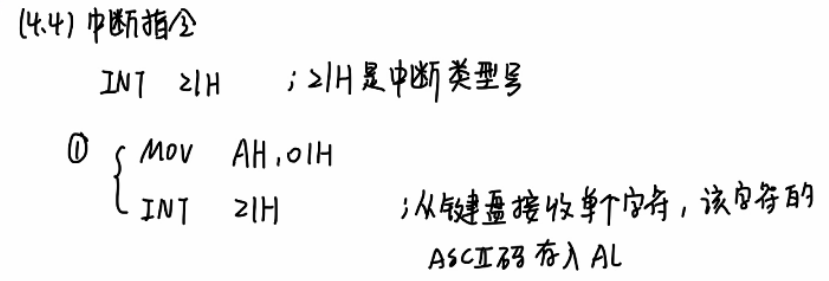 (4.4) 中断指令
INT 21H ;21H是中断类型号
① { MOV AH,01H
INT 21H ;从键盘接收单个字符，该字符的
ASCII码存入AL